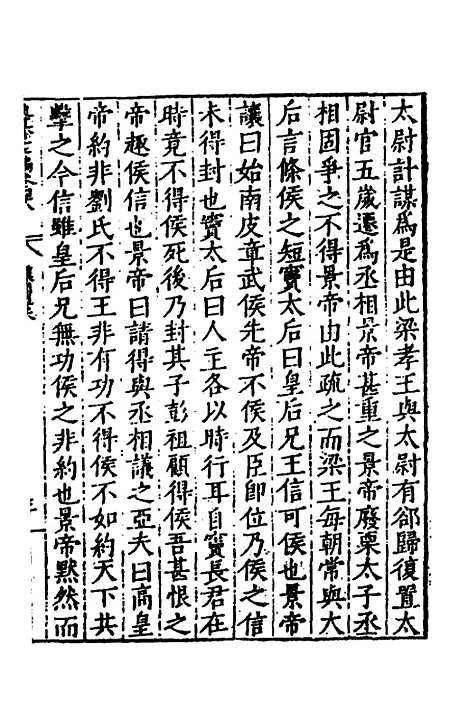 太尉計謀爲是由此梁孝王與太尉有郤歸復置太
尉官五歲遷爲丞相景帝甚重之景帝廢栗太子丞
相固爭之不得景帝由此疏之而梁王每朝常與大
后言條侯之短竇太后曰皇后兄王信可侯也景帝
讓曰始南皮章武侯先帝不侯及臣卽位乃侯之信
未得封也竇太后曰人主各以時行耳自竇長君在
時竟不得侯死後乃封其子彭祖顧得侯吾甚恨之
帝趣侯信也景帝曰請得與丞相議之亞夫曰高皇
帝約非劉氏不得王非有功不得侯不如約天下共
擊之今信雖皇后兄無功侯之非約也景帝黙然而